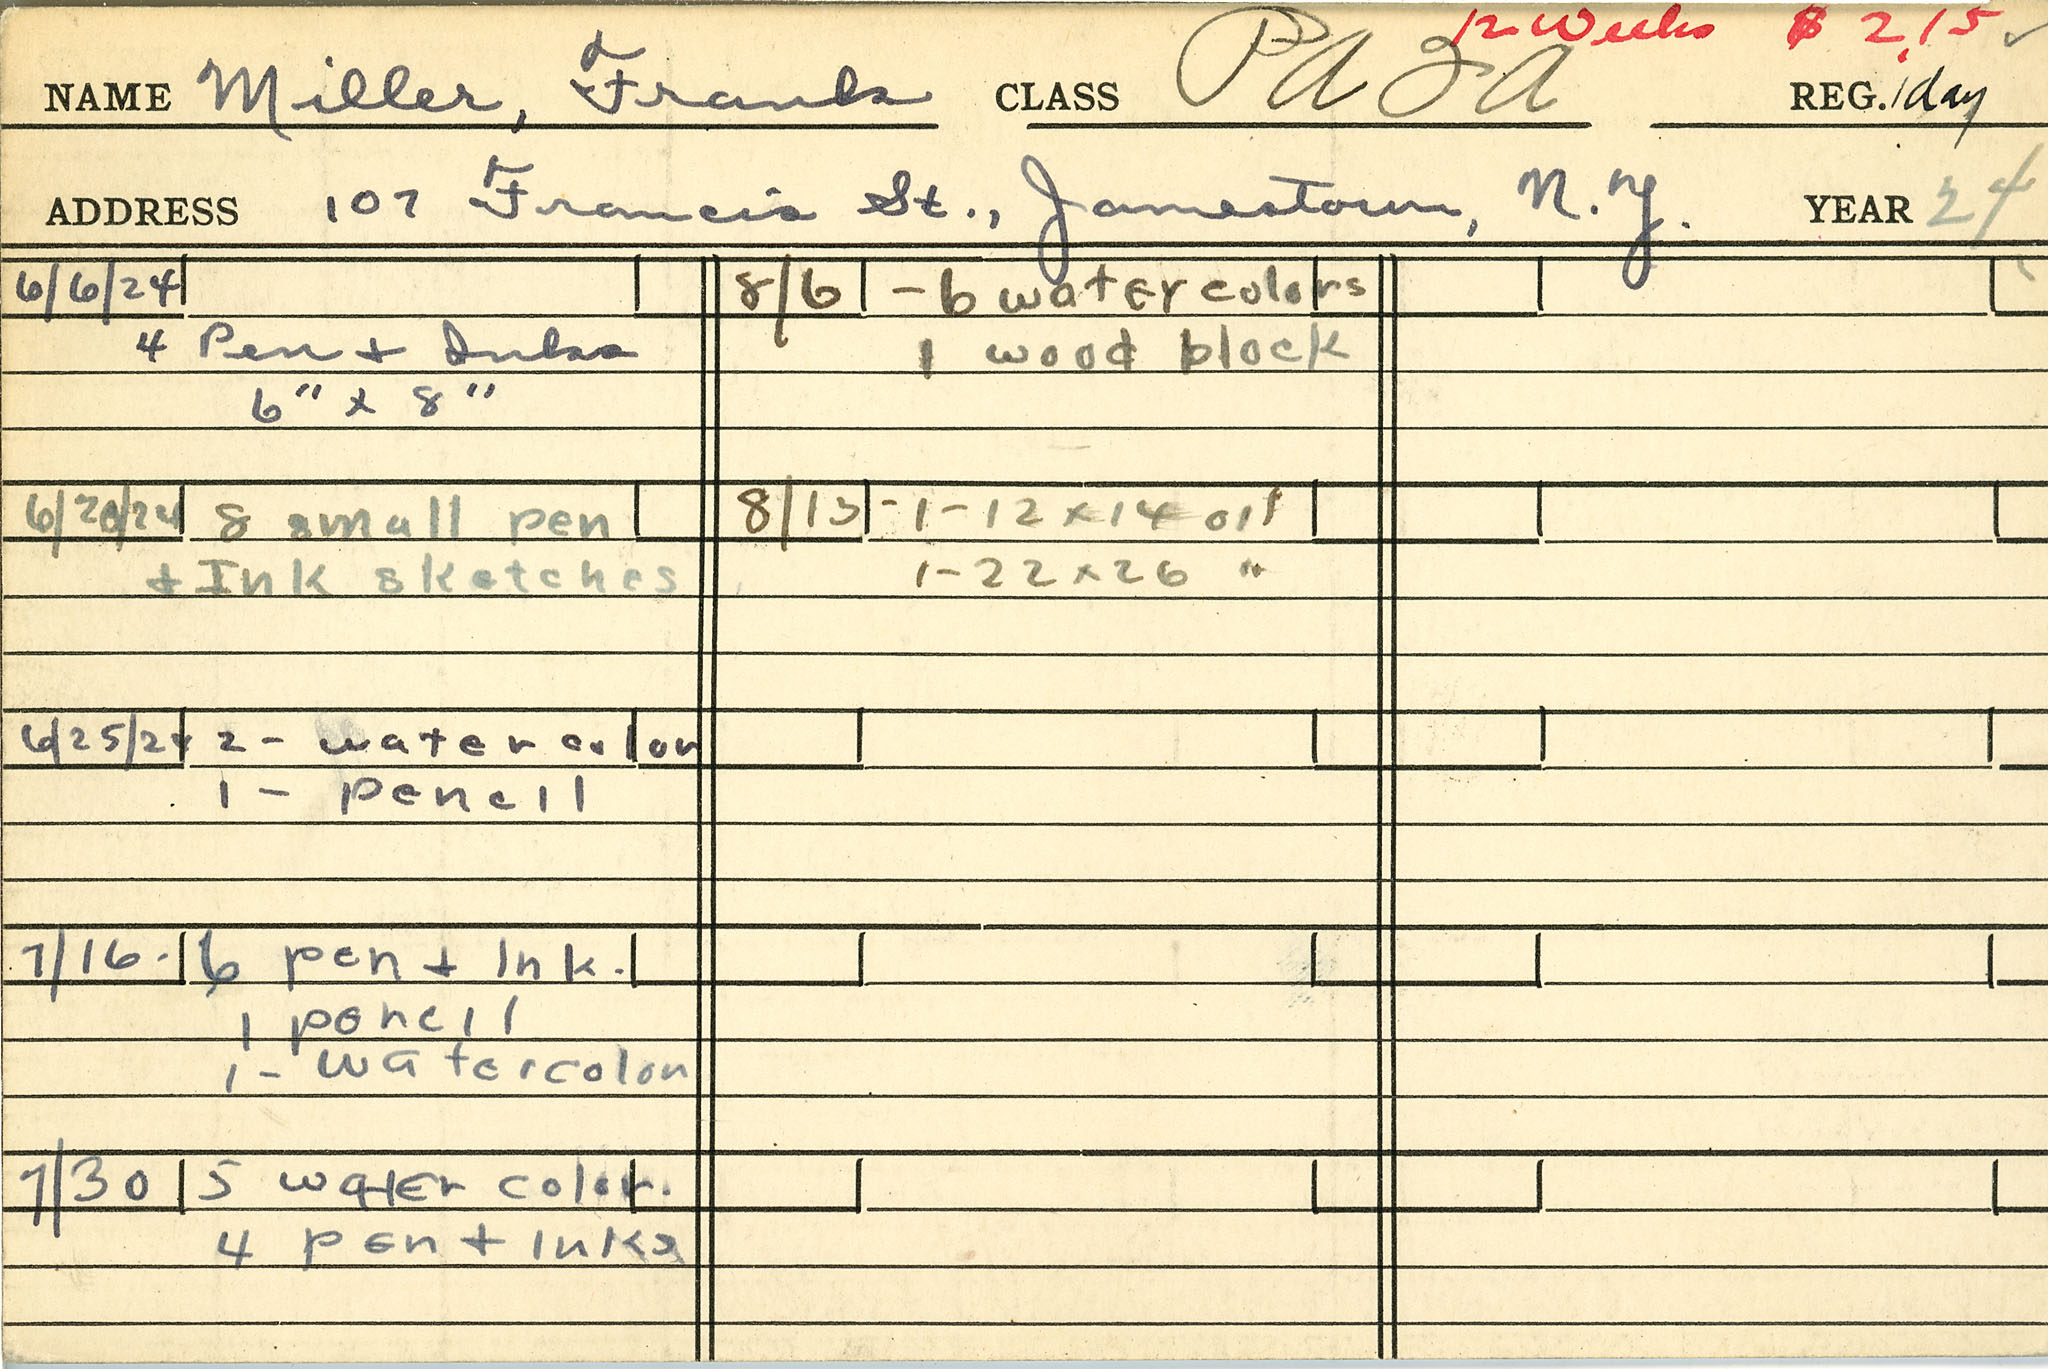 12 Weeks $2.15 ✓
NAME Miller, Frank CLASS PA2A REG. 1 day
ADDRESS 107 Francis St., Jamestown, N.Y. YEAR 24
6/6/24
4 Pen + Inks
6" x 8"
6/20/24 8 small pen
+ Ink sketches
6/25/24 2 - watercolor
1 - pencil
7/16. 6 pen + Ink.
1 pencil
1 - watercolor
7/30 5 water color.
4 pen + Inks
8/6 - 6 watercolors
1 wood block
8/13 - 1 - 12 x 14 oil
1 - 22 x 26 "